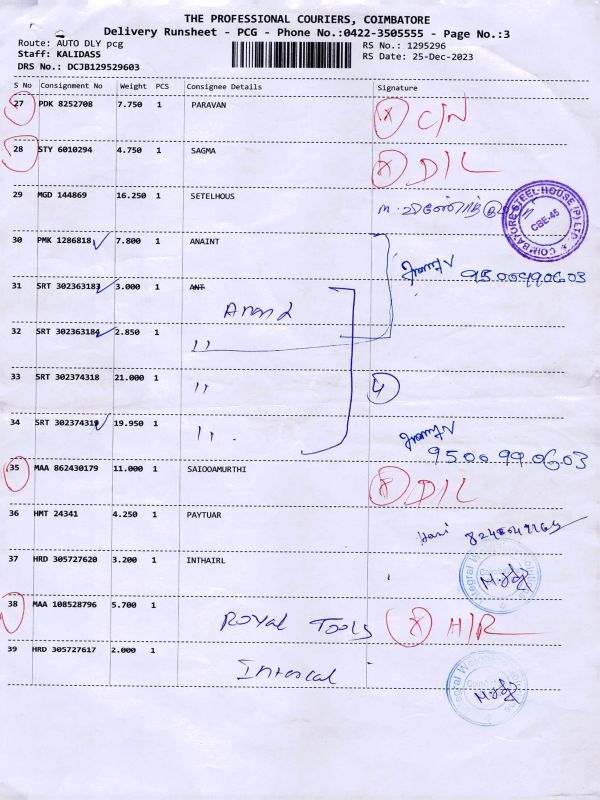 THE PROFESSIONAL COURIERS, COIMBATORE
Delivery Runsheet - PCG - Phone No.:0422-3505555 - Page No.:3
Route: AUTO DLY pcg RS No.: 1295296
Staff: KALIDASS RS Date: 25-Dec-2023
DRS No.: DCJB129529603
S No Consignment No Weight PCS Consignee Details Signature
27 PDK 8252708 7.750 1 PARAVAN X C/N
28 STY 6010294 4.750 1 SAGMA X D/L
29 MGD 144869 16.250 1 SETELHOUS
COIMBATORE STEEL HOUSE (P) LTD.
CBE-45
30 PMK 1286818 7.800 1 ANAINT
9500990603
31 SRT 302363183 3.000 1 ANT
Anand
32 SRT 302363184 2.850 1 ,,
33 SRT 302374318 21.000 1 ,, 4
34 SRT 302374319 19.950 1 ,,
9500990603
35 MAA 862430179 11.000 1 SAIOOAMURTHI X D/L
36 HMT 24341 4.250 1 PAYTUAR
Hari
37 HRD 305727620 3.200 1 INTHAIRL
38 MAA 108528796 5.700 1 ROYAL TOOLS X H/R
39 HRD 305727617 2.000 1